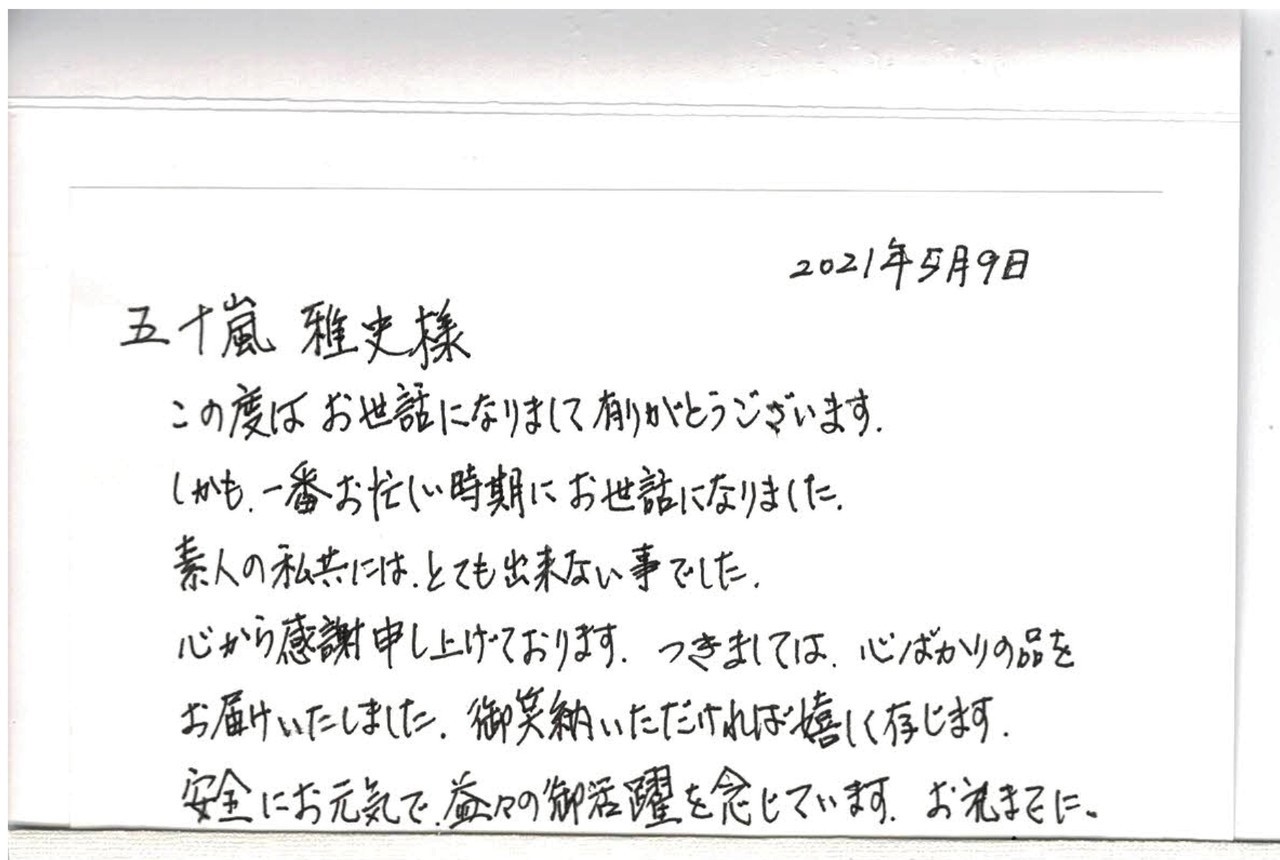 2021年5月9日
五十嵐 雅史様
この度は お世話になりまして有りがとうございます.
しかも、一番お忙しい時期に お世話になりました.
素人の私共には、とても出来ない事でした.
心から感謝申し上げております. つきましては、心ばかりの品を
お届けいたしました. 御笑納いただければ嬉しく存じます.
安全にお元気で、益々の御活躍を念じています. お礼までに。